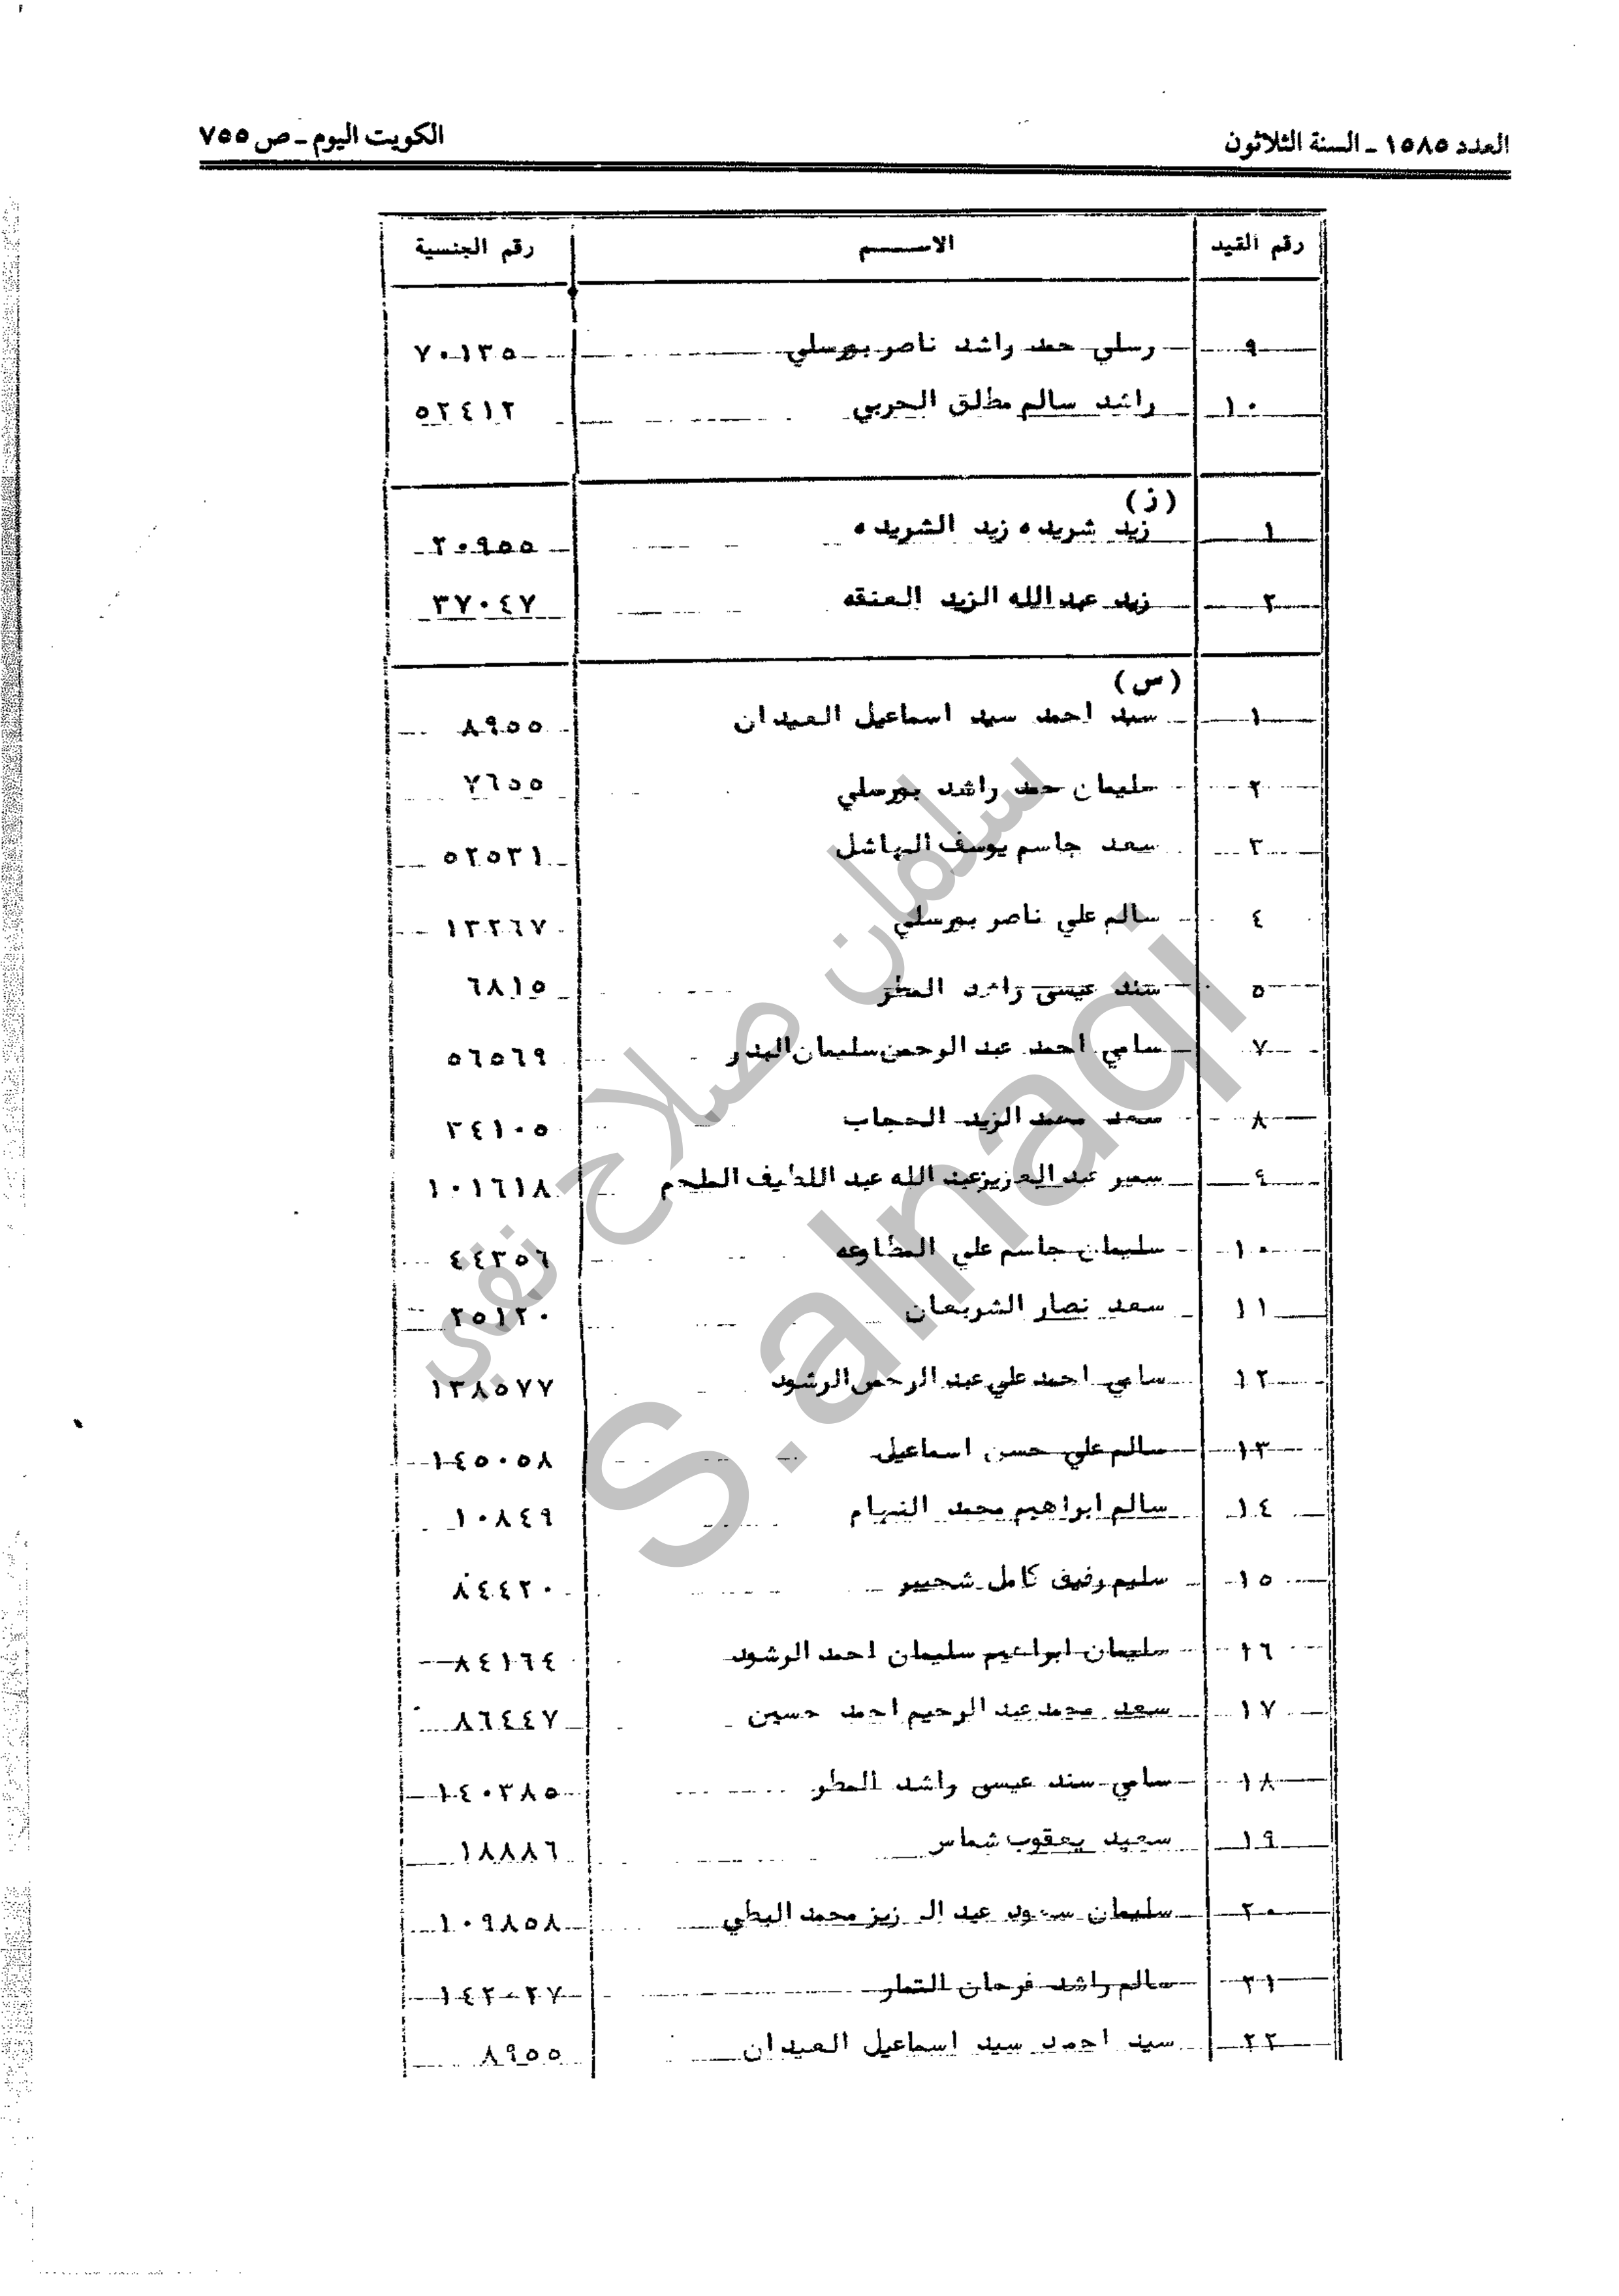 العدد ١٥٨٥ ـ السنة الثلاثون
الكويت اليوم ـ ص ٧٥٥
رقم القيد الاســـم رقم الجنسية
٩ رسلي حمد راشد ناصر بورسلي ٧٠١٣٥
١٠ راشد سالم مطلق الحربي ٥٢٤١٢
(ز)
١ زيد شريده زيد الشريده ٢٠٩٥٥
٢ زيد عبدالله الزيد العنقه ٣٧٠٤٧
(س)
١ سيد احمد سيد اسماعيل العيدان ٨٩٥٥
٢ سليمان حمد راشد بورسلي ٧٦٥٥
٣ سعد جاسم يوسف الهاشل ٥٢٥٣١
٤ سالم علي ناصر بورسلي ١٣٢٦٧
٥ سند عيسى راشد المطر ٦٨١٥
٧ سامي احمد عبد الرحمن سليمان البدر ٥٦٥٦٩
٨ سعد محمد الزيد الحجاب ٣٤١٠٥
٩ سمير عبد العزيز عبد الله عبد اللطيف الملحم ١٠١٦١٨
١٠ سليمان جاسم علي المطاوعه ٤٤٣٥٦
١١ سعد نصار الشريعان ٢٥١٢٠
١٢ سامي احمد علي عبد الرحمن الرشود ١٣٨٥٧٧
١٣ سالم علي حسن اسماعيل ١٤٥٠٥٨
١٤ سالم ابراهيم محمد النهام ١٠٨٤٩
١٥ سليم رفيق كامل شحيبر ٨٤٤٢٠
١٦ سليمان ابراهيم سليمان احمد الرشود ٨٤١٦٤
١٧ سعد محمد عبد الرحيم احمد حسين ٨٦٤٤٧
١٨ سامي سند عيسى راشد المطر ١٤٠٣٨٥
١٩ سعيد يعقوب شماس ١٨٨٨٦
٢٠ سليمان سعود عبد العزيز محمد البطي ١٠٩٨٥٨
٢١ سالم راشد فرحان التمار ١٤٢٠٢٧
٢٢ سيد احمد سيد اسماعيل العيدان ٨٩٥٥
سلمان صلاح نقي
S.alnaqi